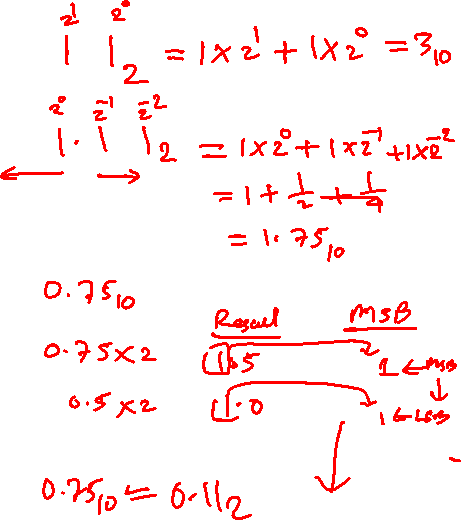 2¹ 2⁰
1 1₂ = 1×2¹ + 1×2⁰ = 3₁₀
2⁰ 2⁻¹ 2⁻²
1. 1 1₂ = 1×2⁰ + 1×2⁻¹ + 1×2⁻²
= 1 + 1/2 + 1/4
= 1.75₁₀
0.75₁₀ Result MSB
0.75×2 1.5 1 ← MSB
0.5×2 1.0 1 ← LSB
0.75₁₀ = 0.11₂